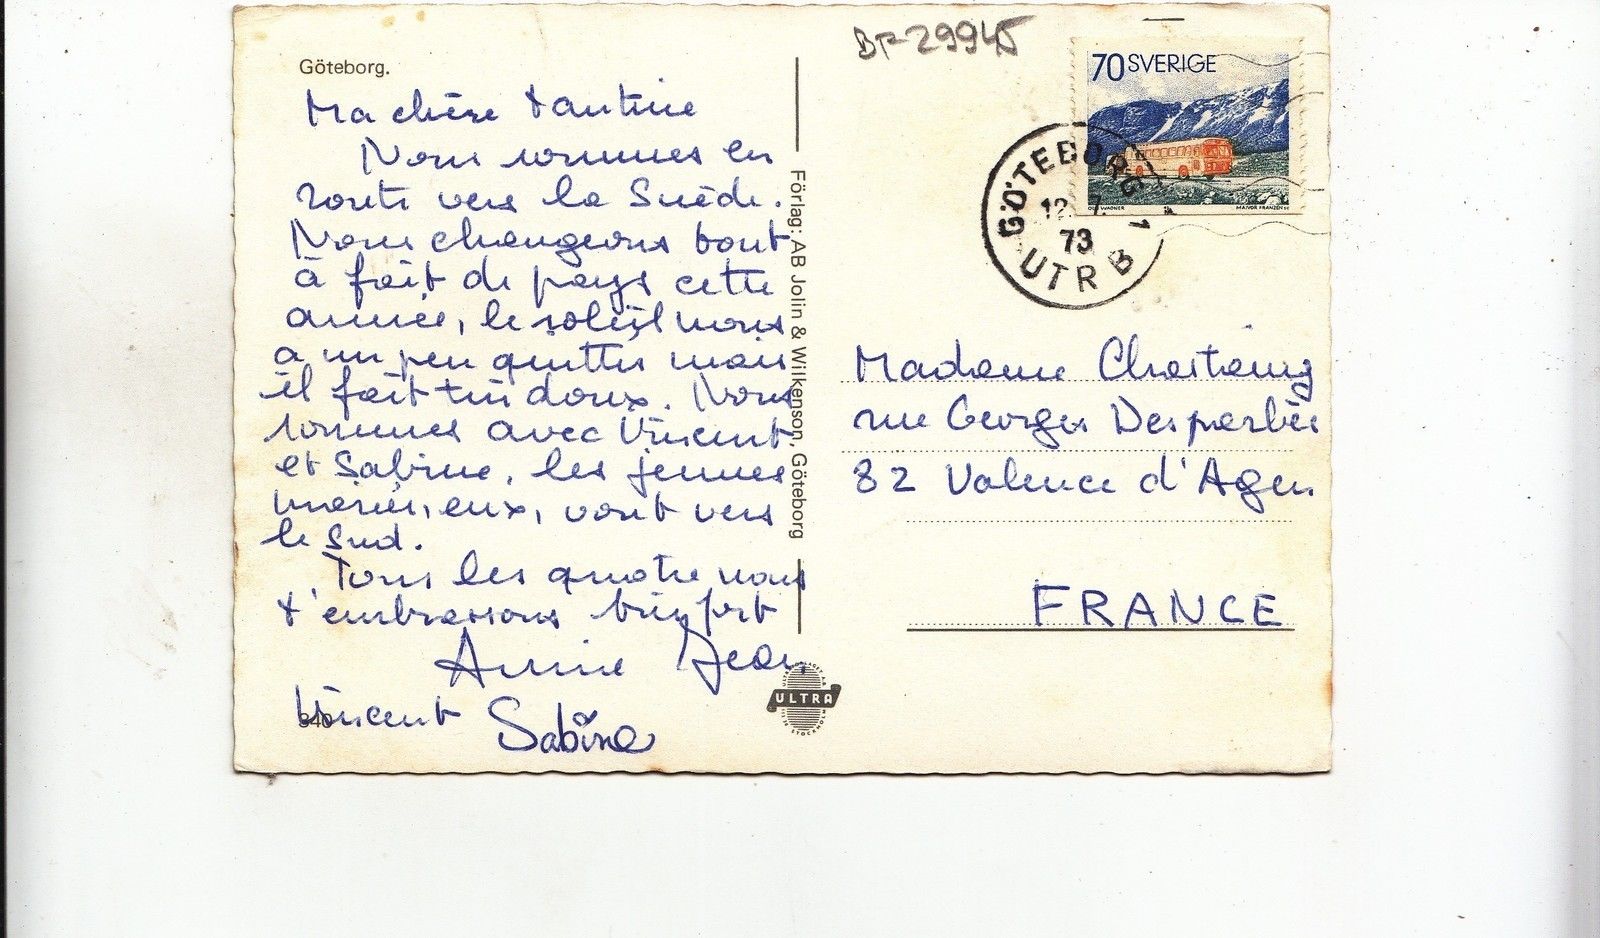 Göteborg.
Ma chère tantine
Nous sommes en
route vers la Suède.
Nous changeons tout
à fait de pays cette
année, le soleil nous
a un peu quittés mais
il fait très doux. Nous
sommes avec Vincent
et Sabine, les jeunes
mariés, eux, vont vers
le Sud.
Tous les quatre nous
t'embrassons très fort
Annie Jean
Vincent Sabine
Förlag: AB Jolin & Wilkenson, Göteborg
ULTRA
STOCKHOLM
BF-29945
70 SVERIGE
MAJVOR FRANZÉN SC
GÖTEBORG 1
12. 7.
73
UTR B
Madame Chastaing
rue Georges Desparbès
82 Valence d'Agen
FRANCE